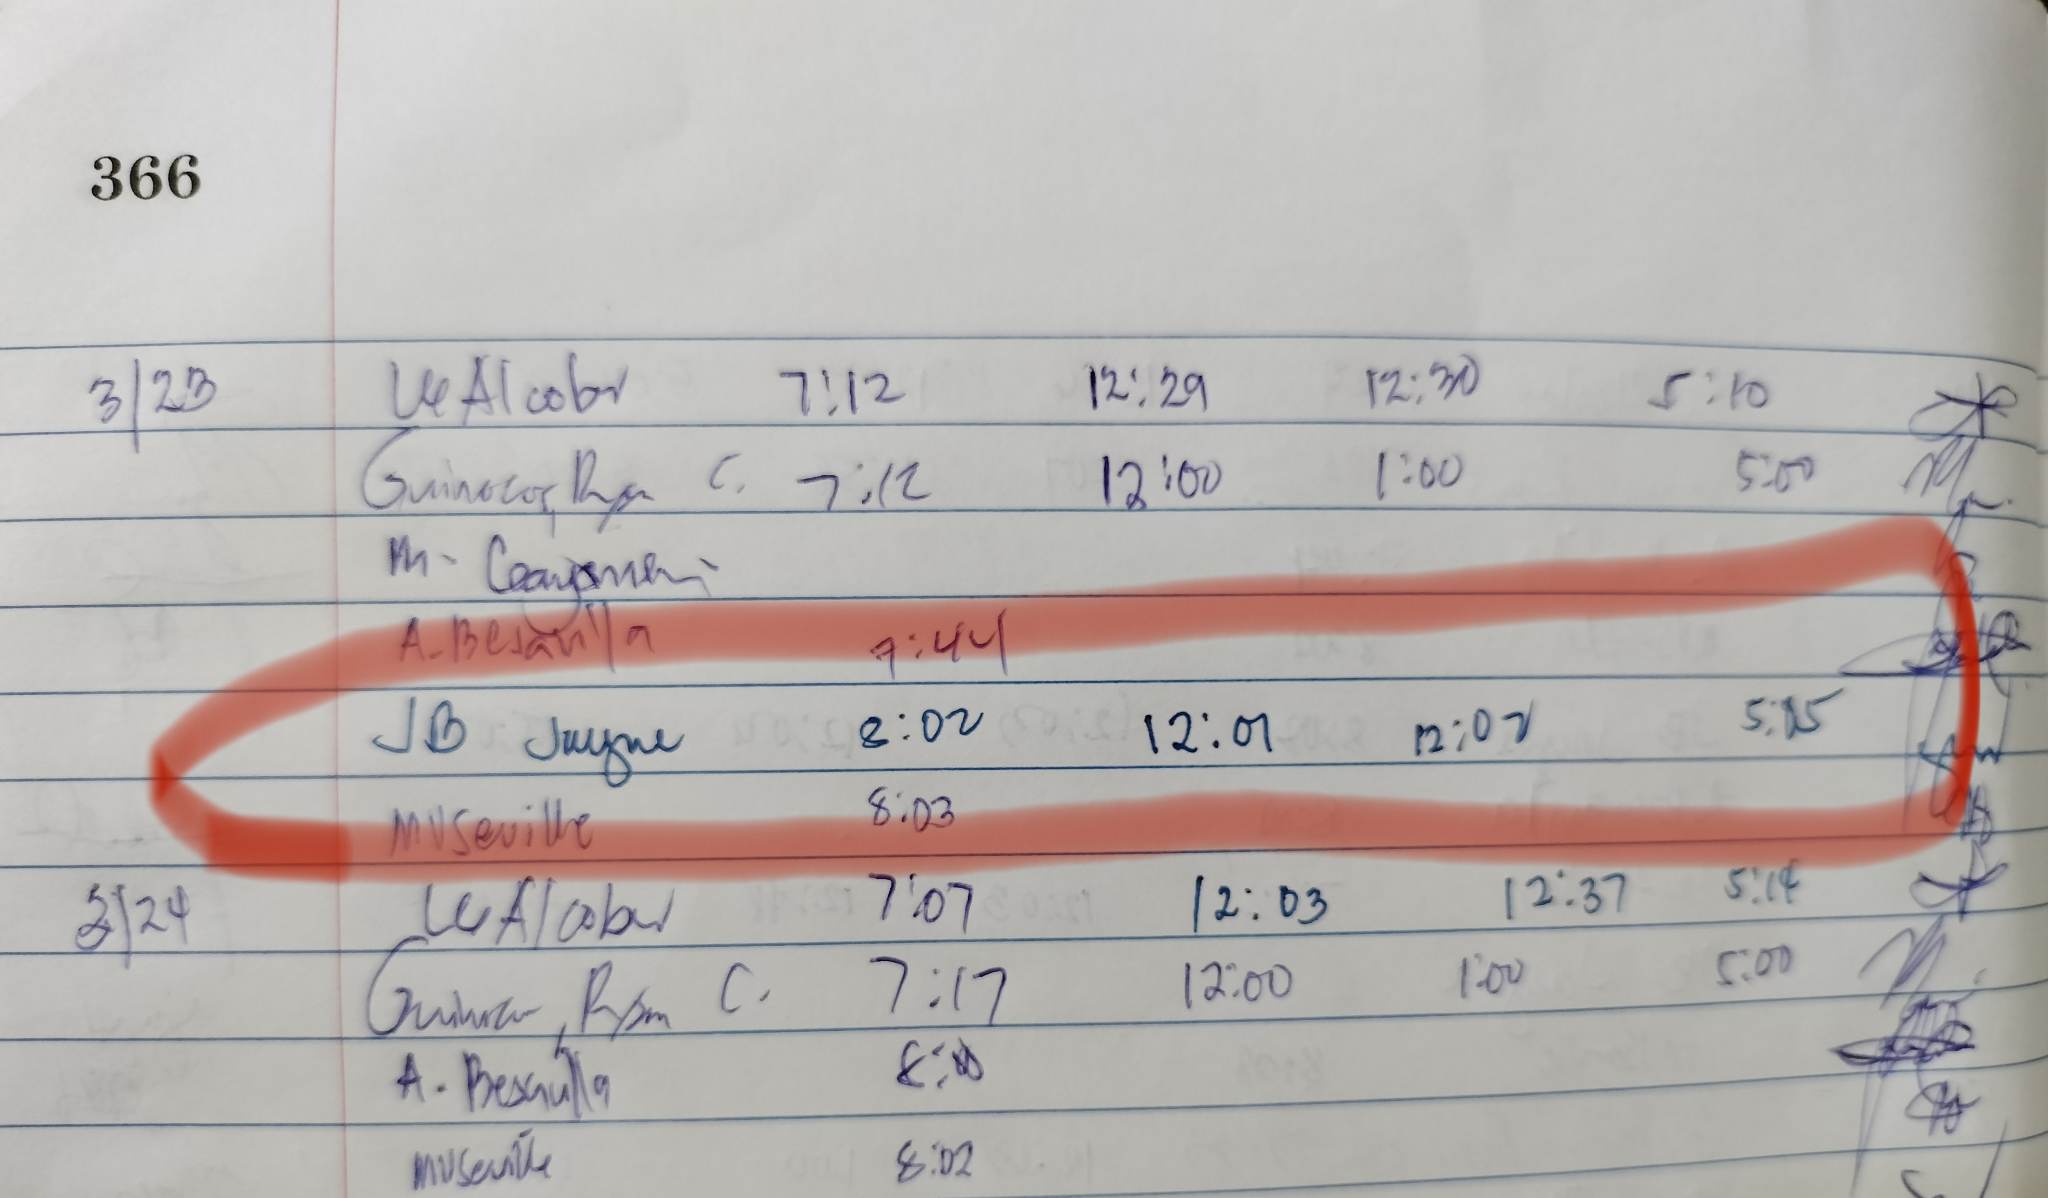 366
3/23 LC Alcober 7:12 12:29 12:30 5:10
Guinocor, Ryan C. 7:12 12:00 1:00 5:00
M.
A. Besavilla 7:44
JB Jayme 8:02 12:01 12:02 5:15
MVSeville 8:03
3/24 LC Alcober 7:07 12:03 12:37 5:14
Guinocor, Ryan C. 7:17 12:00 1:00 5:00
A. Besavilla
MVSeville 8:02